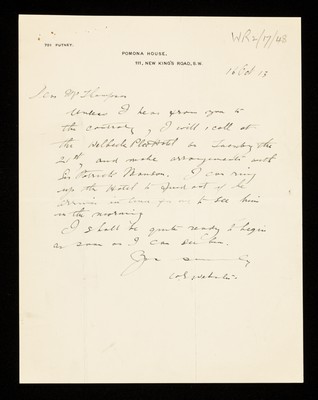 WR2/17/48
751 PUTNEY.
POMONA HOUSE,
111, NEW KING'S ROAD, S.W.
16 Oct 13
Dear Mr Thompson
Unless I hear from you to
the contrary, I will call at
the Hotel on the
21st, and make arrangements with
Sir Patrick Manson. I can ring
up the Hotel to find out if he
arrives in time for me to see him
in the morning
I shall be quite ready to begin
as soon as I can see him.
Yours